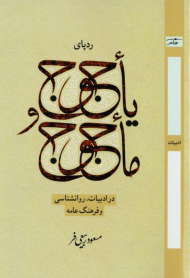 ردپای
یأجوج و
مأجوج
در ادبیات، روانشناسی
و فرهنگ عامه
مسعود ربیعی فر
ادبیات